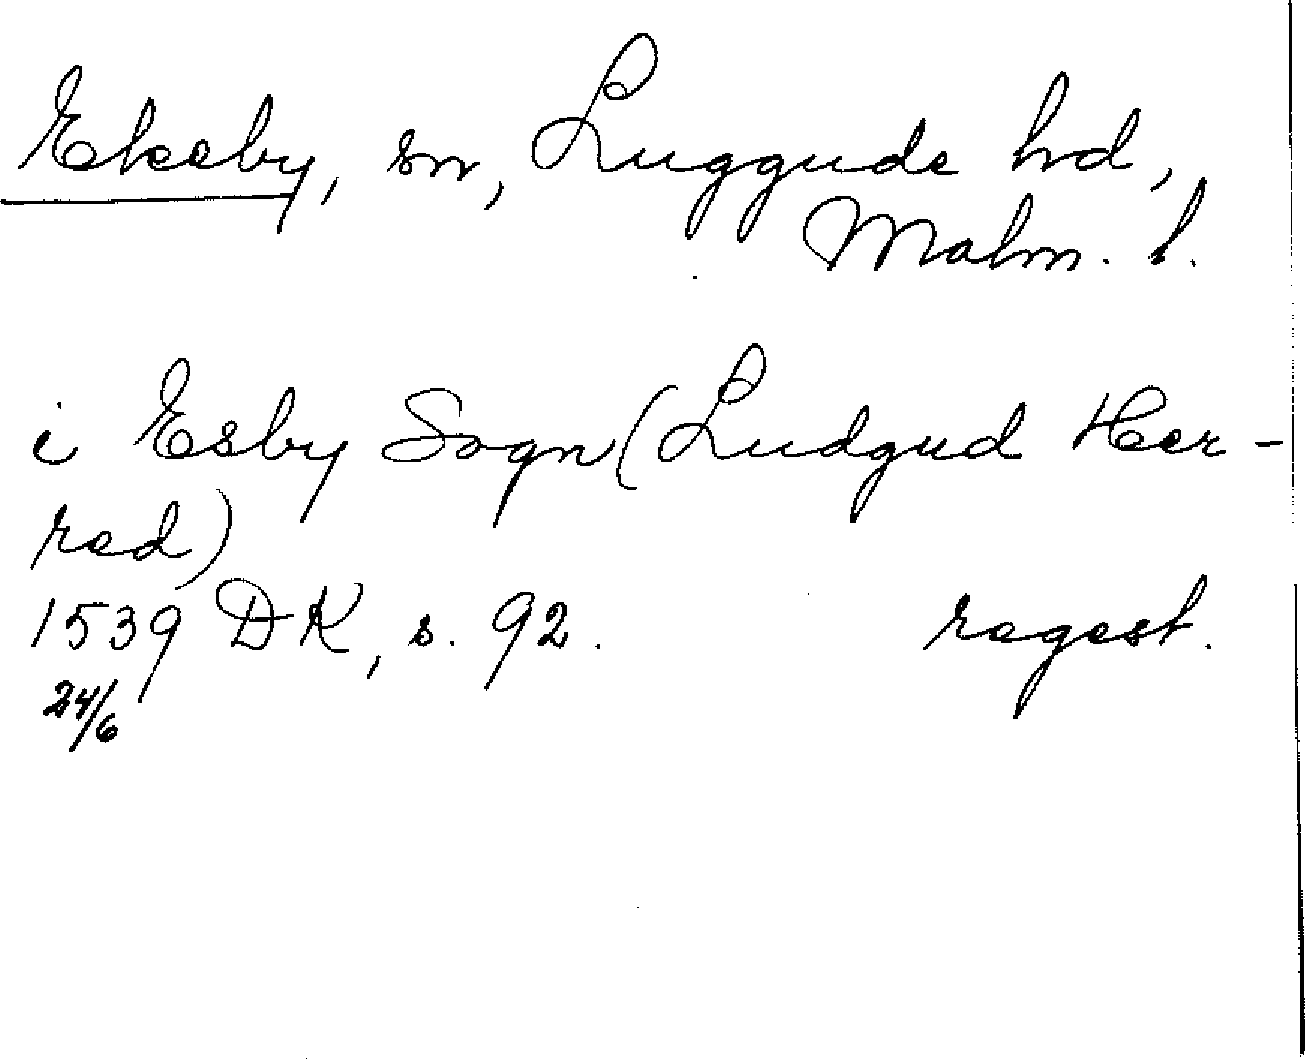 Ekeby, sn, Luggude hd,
Malm. l.
i Esby Sogn (Ludgud Her-
red)
1539 DK, s. 92. regest.
24/6